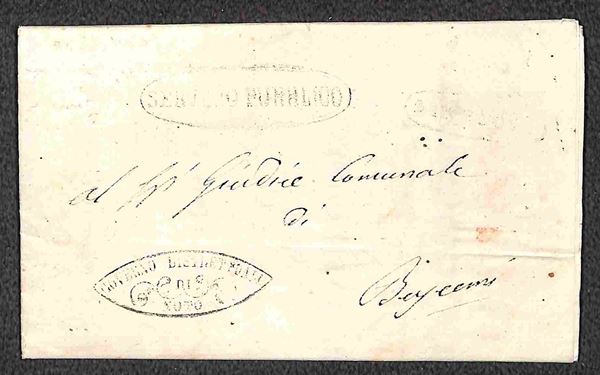 SERVIZIO PUBBLICO
Al Sig.r Giudice Comunale
di
GOVERNO DISTRETTUALE
DI
NOTO